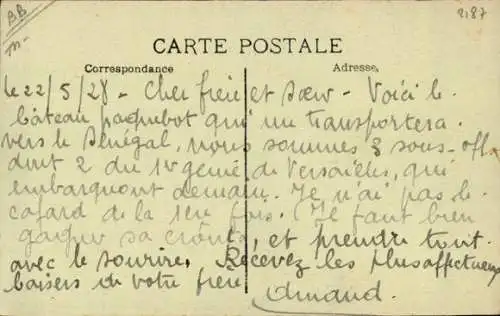 BB
m-
2187
CARTE POSTALE
Correspondance
Adresse
le 22/5/28 - Cher frère et sœur - Voici le
bâteau paquebot qui me transportera
vers le Sénégal, nous sommes 3 sous-off
dont 2 du 1er génie de Versailles, qui
embarquont demain. Je n'ai pas le
cafard de la 1ere fois. Je faut bien
gagner sa croûte, et prendre tout
avec le sourire. Recevez les plus affectueux
baisers de votre frère
Armand.